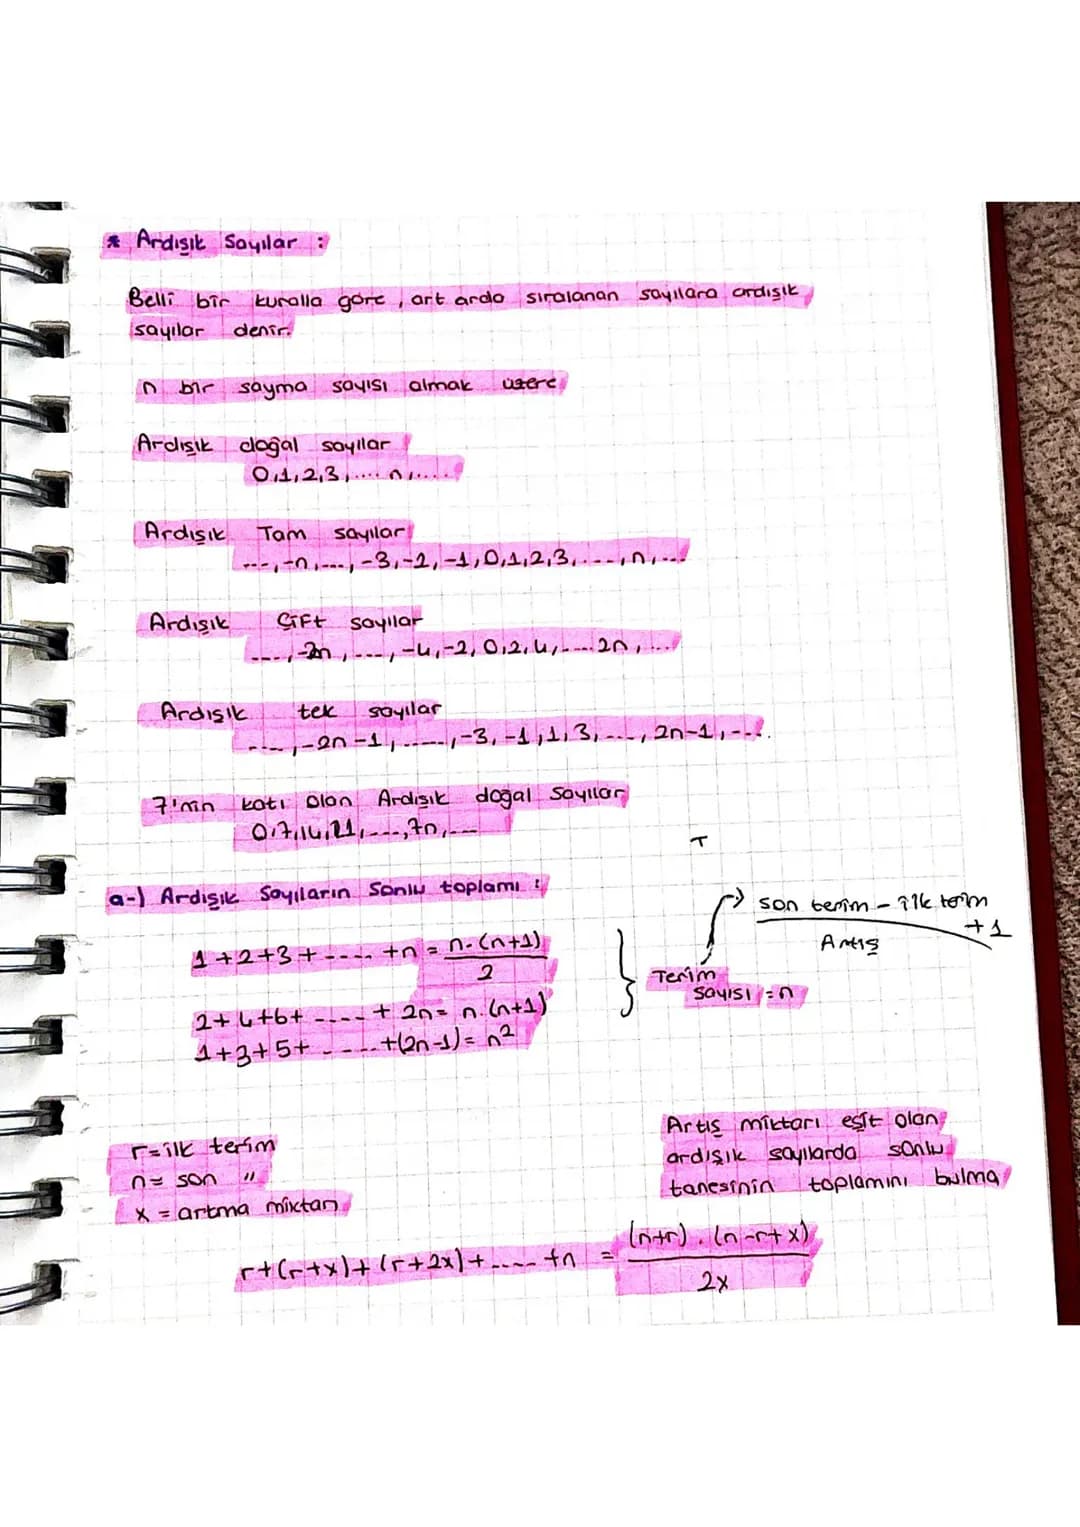 * Ardışık Sayılar :
Belli bir kuralla göre, art arda sıralanan sayılara ardışık
sayılar denir.
n bir sayma sayısı olmak üzere
Ardışık doğal sayılar
0,1,2,3,.... n,.....
Ardışık Tam sayılar
...,-n,...,-3,-2,-1,0,1,2,3,....,n,...
Ardışık Çift sayılar
....,-2n,...,-4,-2,0,2,4,....2n,...
Ardışık tek sayılar
...,-2n-1,.....,-3,-1,1,3,...,2n-1,...
7'nin katı olan Ardışık doğal Sayılar
0,7,14,21,...,7n,...
T
a-) Ardışık Sayıların Sonlu toplamı :
1+2+3+.... +n = n.(n+1)
2
2+4+6+ .... + 2n = n.(n+1)
1+3+5+ .....+(2n-1)= n²
son terim - ilk terim
+1
Artış
Terim
Sayısı = n
r = ilk terim
n = son "
x = artma miktarı
Artış miktarı eşit olan
ardışık sayılarda sonlu
tanesinin toplamını bulma
r+(r+x)+(r+2x)+.... +n = (n+r).(n-r+x)
2x